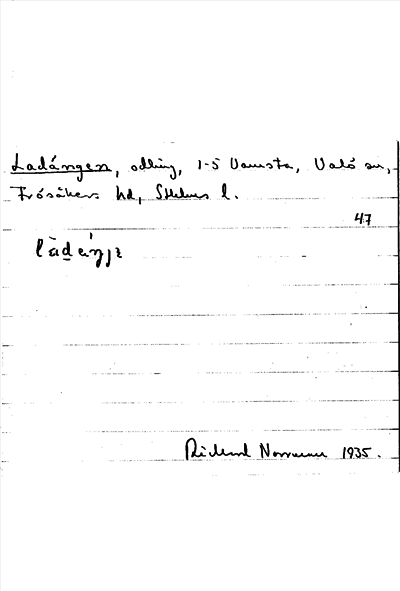 Ladängen, odling, 1-5 Vamsta, Valö sn,
Frösåkers hd, Sthlms l.
47
Richard Norrman 1935.